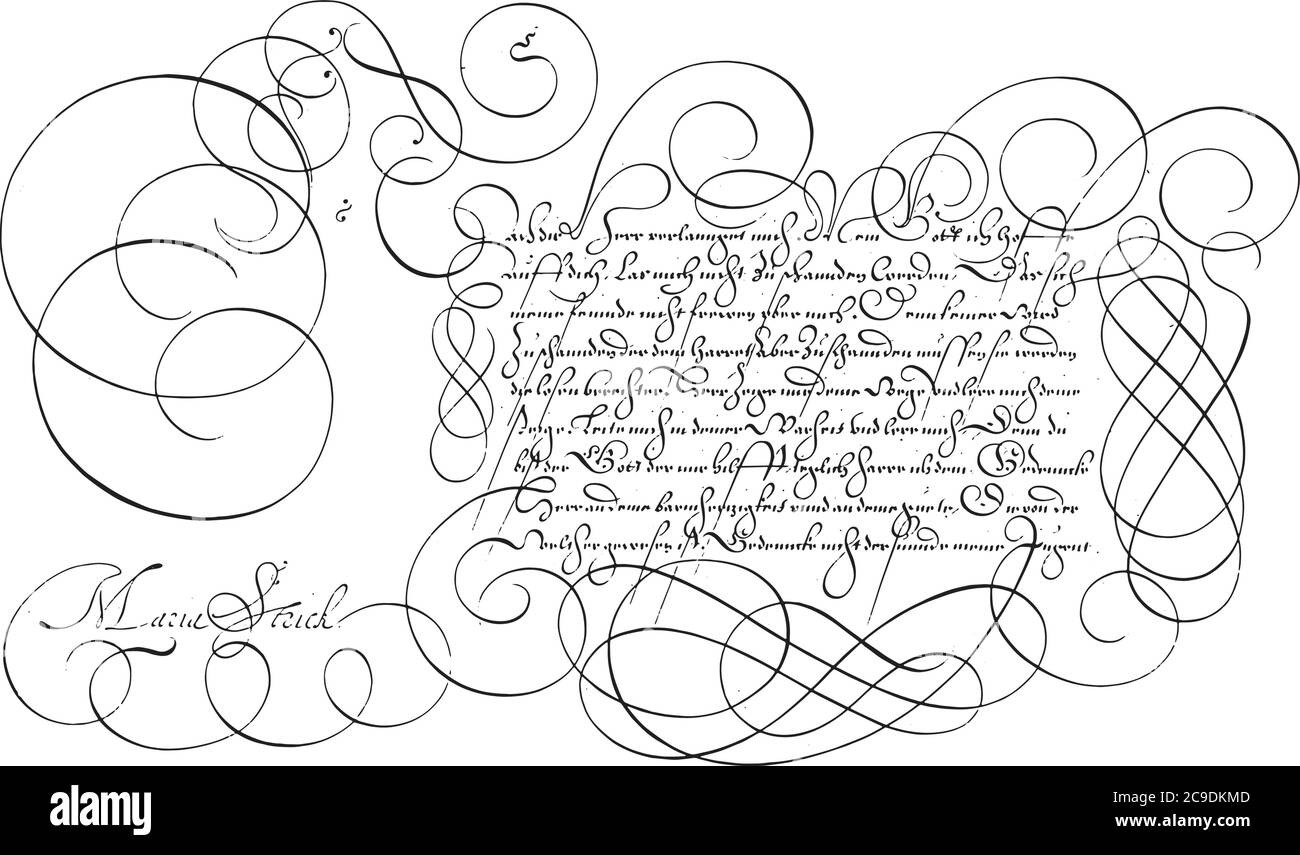 Nach dir Herr verlanget mich. Mein Gott ich hoffe
auff dich, Las mich nicht zu schannden werden, Das sich
meine feinde nicht frewen vber mich. Denn keiner wird
zu schanden der dein harret Aber zu schanden müssen sie werden
die losen verechter. Herr zeige mir deine Wege vnd lere mich deine
stege. Leite mich in deiner Warheit vnd lere mich. Denn du
bist der Gott der mir hilfft, teglich harre ich dein. Gedencke
Herr an deine barmhertzigkeit vnnd an deine guete, Die von der
Welt her gewesen ist. Gedencke nicht der sünde meiner Jugent.
Maria Strick.
alamy
Image ID: 2C9DKMD
www.alamy.com